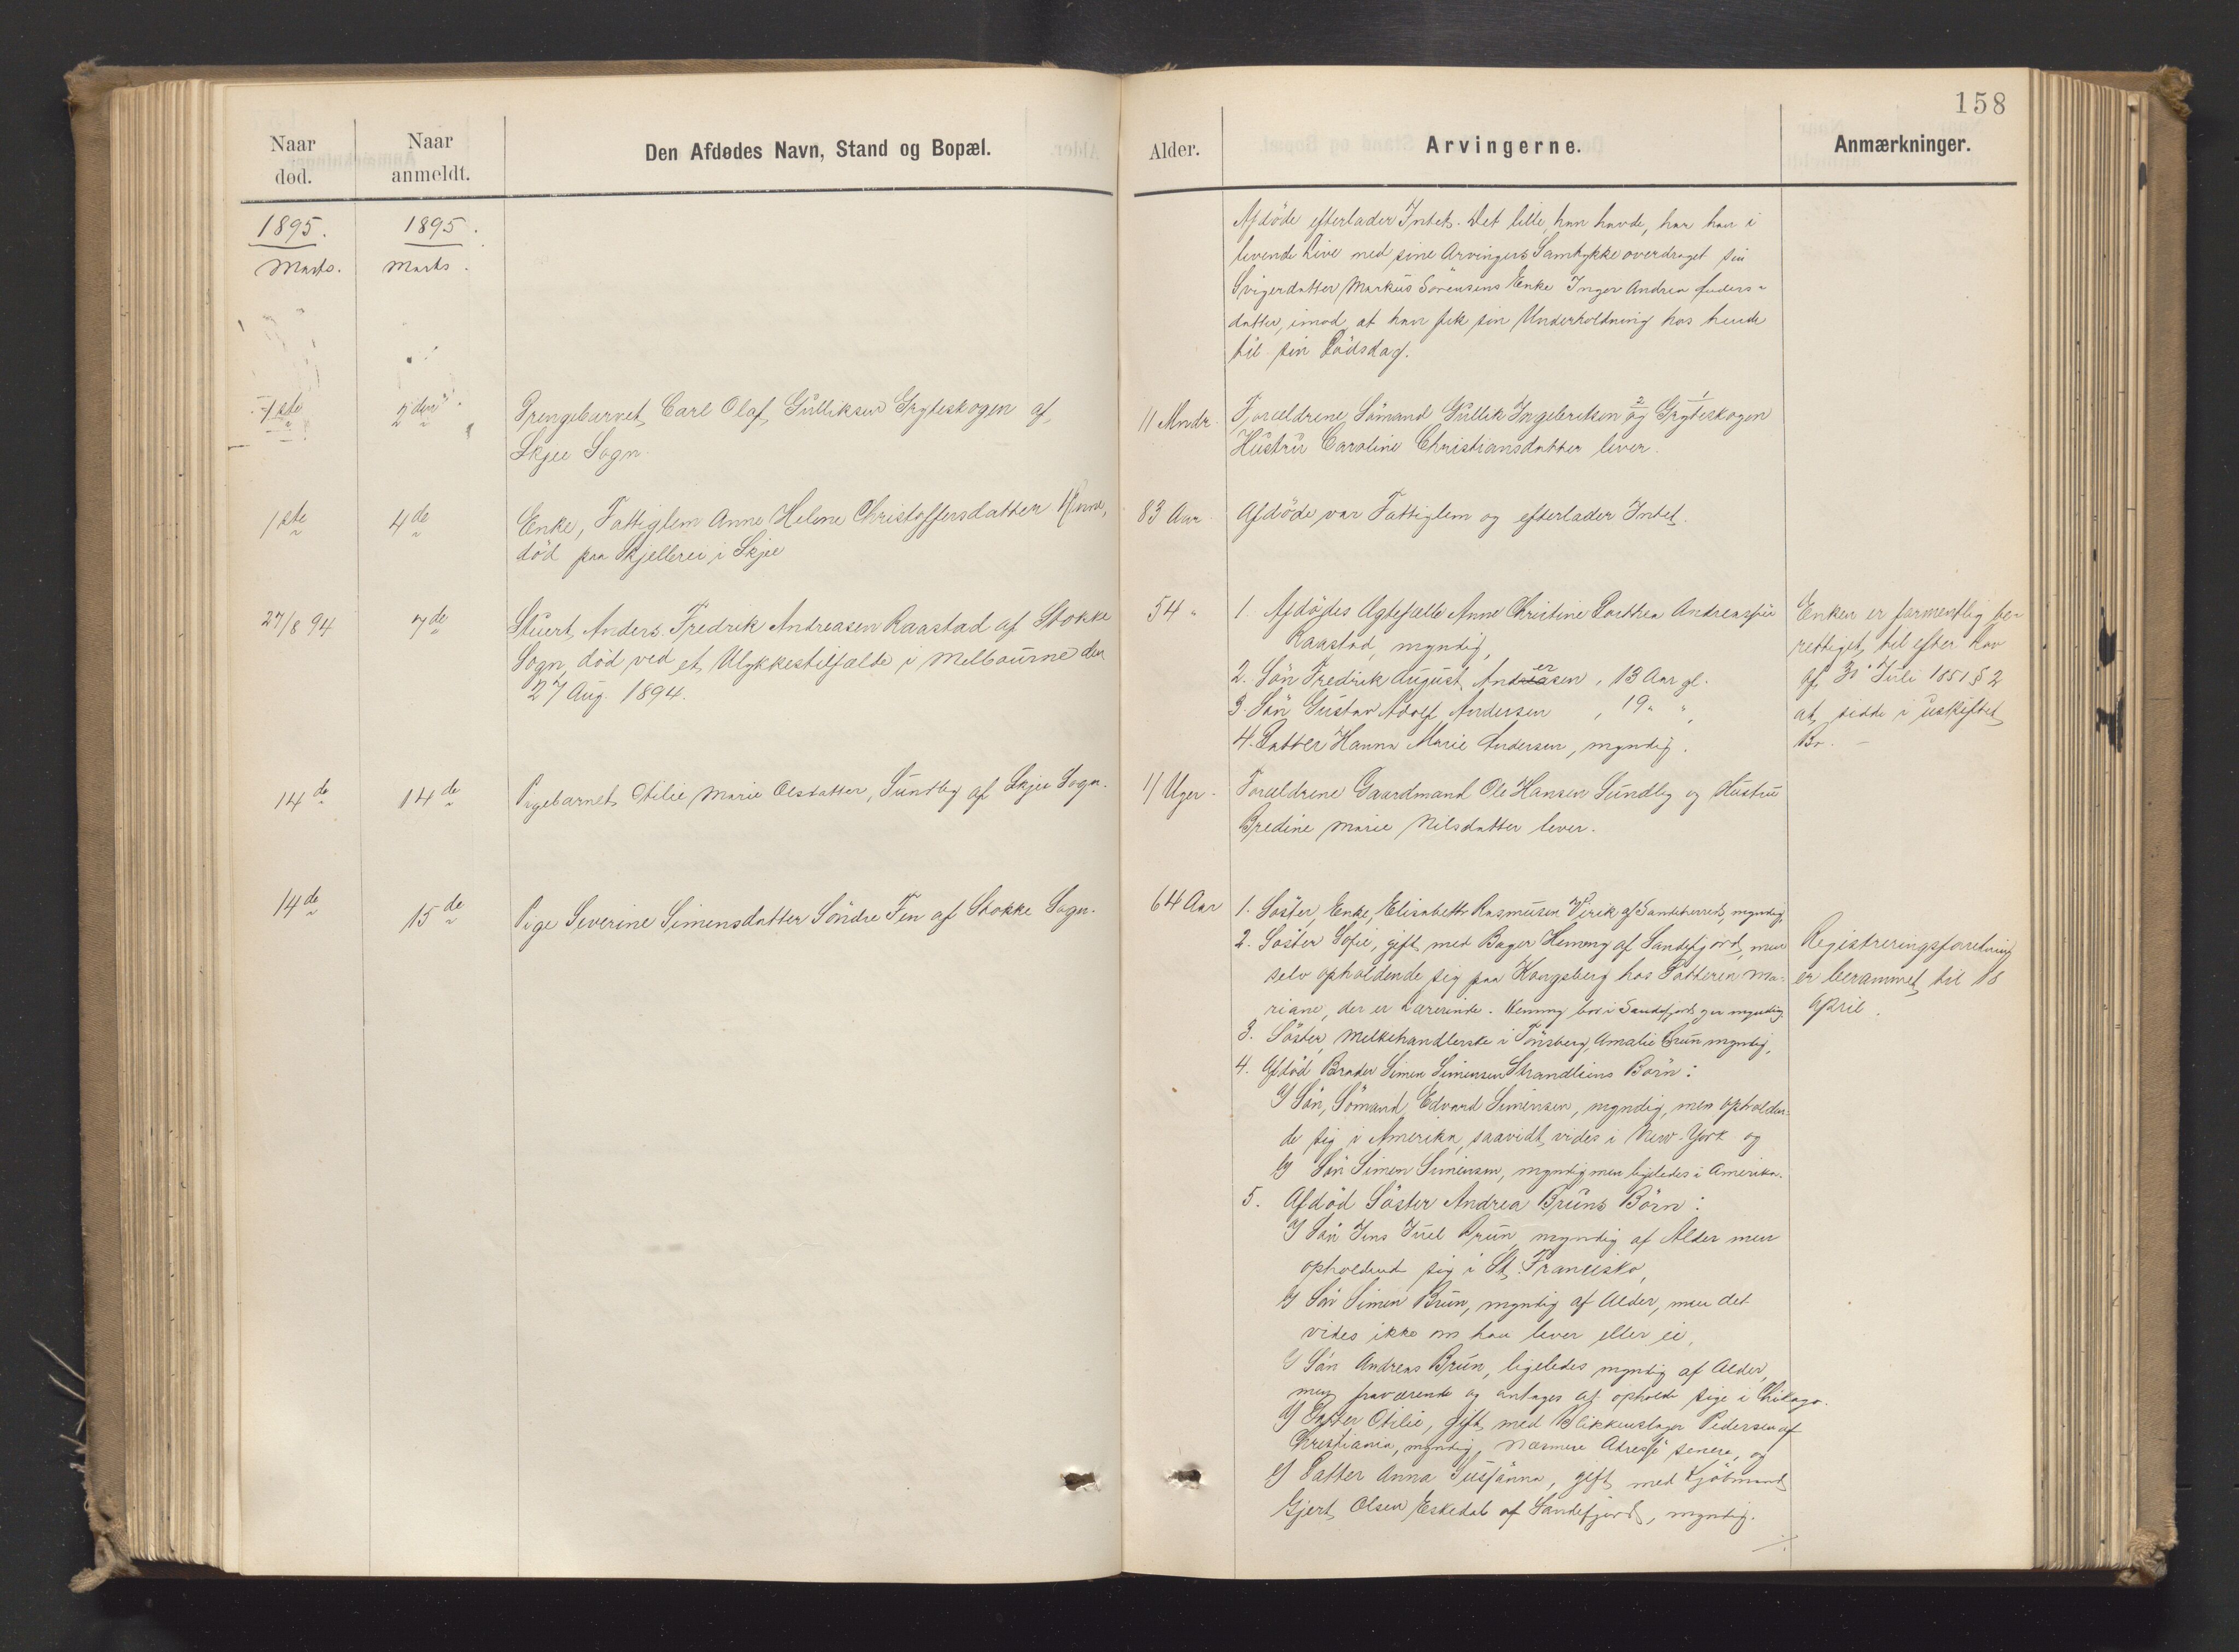 158
Naar
død.
Naar
anmeldt.
Den Afdødes Navn, Stand og Bopæl.
Alder.
Arvingerne.
Anmærkninger.
1895.
1895.
Marts.
Marts.
Afdöde efterlader Intet. Det lille, han havde, har han i
levende Live med sine Arvingers Samtykke overdraget sin
Svigerdatter Markus Sörensens Enke Inger Andrea Anders-
datter, imod at han fik sin Underholdning hos hende
til sin Dödsdag.
1ste
2den
Drengebarnet Carl Olaf Gulliksen Gryteskogen af
Skjee Sogn.
11 Mndr.
Forældrene Sömand Gullik Ingebretsen 2 og 1 Gryteskogen
Hustru Caroline Christiansdatter lever.
1ste
4de
Enke, Fattiglem Anne Helene Christoffersdatter
död paa Skjellerei i Skjee
83 Aar
Afdöde var Fattiglem og efterlader Intet.
27/8 94
7de
Stuert Anders Fredrik Andreasen Raastad af Stokke
Sogn, död ved et Ulykkestilfælde i Melbourne den
27 Aug. 1894.
54 "
1. Afdödes Ægtefælle Anne Christine Dorthea Andreassen
Raastad, myndig,
2. Sön Fredrik August Andersen, 13 Aar gl.
3. Sön Gustav Adolf Andersen, 19 " "
4. Datter Hanna Marie Andersen, myndig.
Enken er formentlig be-
rettiget til efter Lov
af 30 Juli 1851 § 2
at sidde i uskiftet
Bo. –
14de
14de
Pigebarnet Otilie Marie Olsdatter, Sundby af Skjee Sogn.
11 Uger.
Forældrene Gaardmand Ole Hansen Sundby og Hustru
Gredine Marie Nilsdatter lever.
14de
15de
Pige Severine Simensdatter Söndre Fen af Stokke Sogn.
64 Aar
1. Söster, Enke, Elisabeth Rasmusen Virik af Sandeherred, myndig,
2. Söster Sofie, gift med Bager Hemmy af Sandefjord, men
selv opholdende sig paa Kongsberg hos Datteren Ma-
riane, der er Lærerinde. Hemmy bor i Sandefjord, er myndig.
3. Söster, Melkehandlerske i Tönsberg, Amalie Brun myndig,
4. Afdöd Broder Simen Simensen Strandliens Börn:
a) Sön, Sömand Edvard Simensen, myndig, men opholden-
de sig i Amerika, saavidt vides i New-York og
b) Sön Simen Simensen, myndig men ligeledes i Amerika.
5. Afdöd Söster Andrea Bruns Börn:
a) Sön Jens Juel Brun, myndig af Alder men
opholdend sig i St. Francisko,
b) Sön Simen Brun, myndig af Alder, men det
vides ikke om han lever eller ei,
c) Sön Andreas Brun, ligeledes myndig af Alder,
men fraværende og antages at opholde sige i Chikago.
d) Datter Otilie, gift med Blikkenslager Pedersen af
Christiania, myndig, nærmere Adresse senere, og
e) Datter Anna Susanna, gift med Kjöbmand
Gjert Olsen Eskedal af Sandefjord, myndig.
Registreringsforretning
er berammet til 18
April.